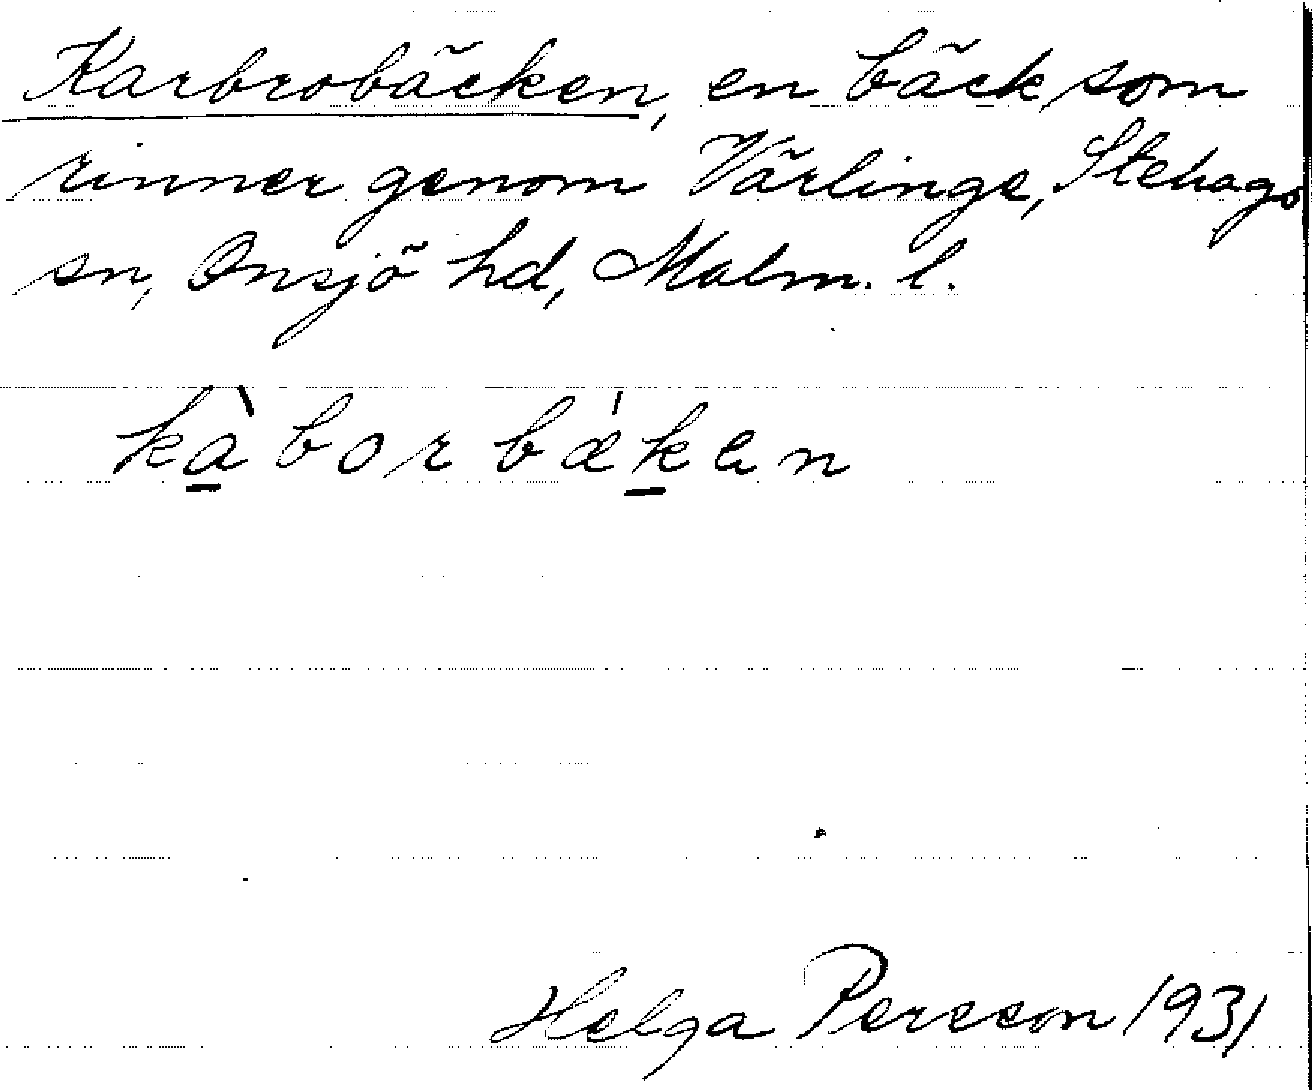 Karbrobäcken, en bäck som
rinner genom Värlinge, Stehags
sn, Onsjö hd, Malm. l.
kà̱borbæ̍ḵen
Helga Persson 1931